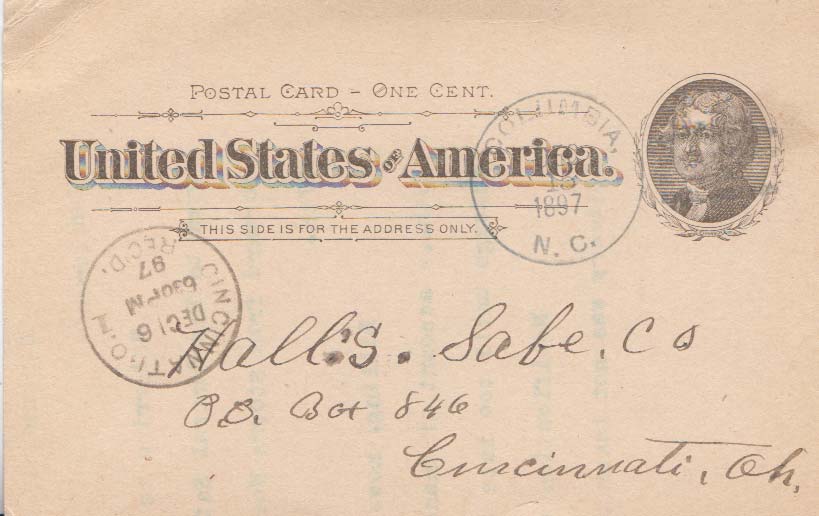 POSTAL CARD - ONE CENT.
United States OF America.
THIS SIDE IS FOR THE ADDRESS ONLY.
COLUMBIA,
1897
N. C.
CINCINNATI. O.
DEC 16
630 PM
97
REC'D.
Hall's. Safe. Co
P.O. Box 846
Cincinnati, Oh,